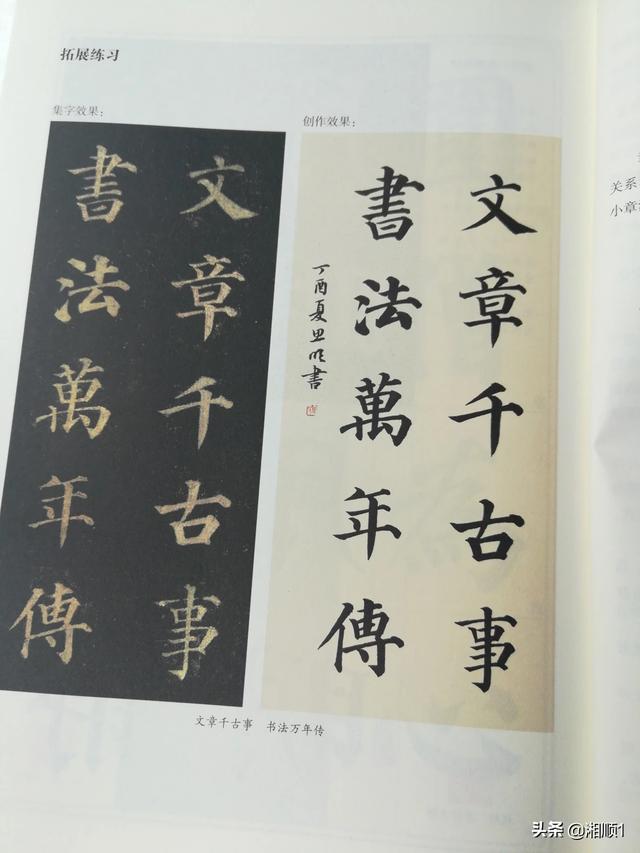 拓展练习
集字效果：
文章千古事
書法萬年傳
创作效果：
文章千古事
書法萬年傳
丁酉夏思明書
文章千古事　书法万年传
关系
小章
头条 @湘顺1